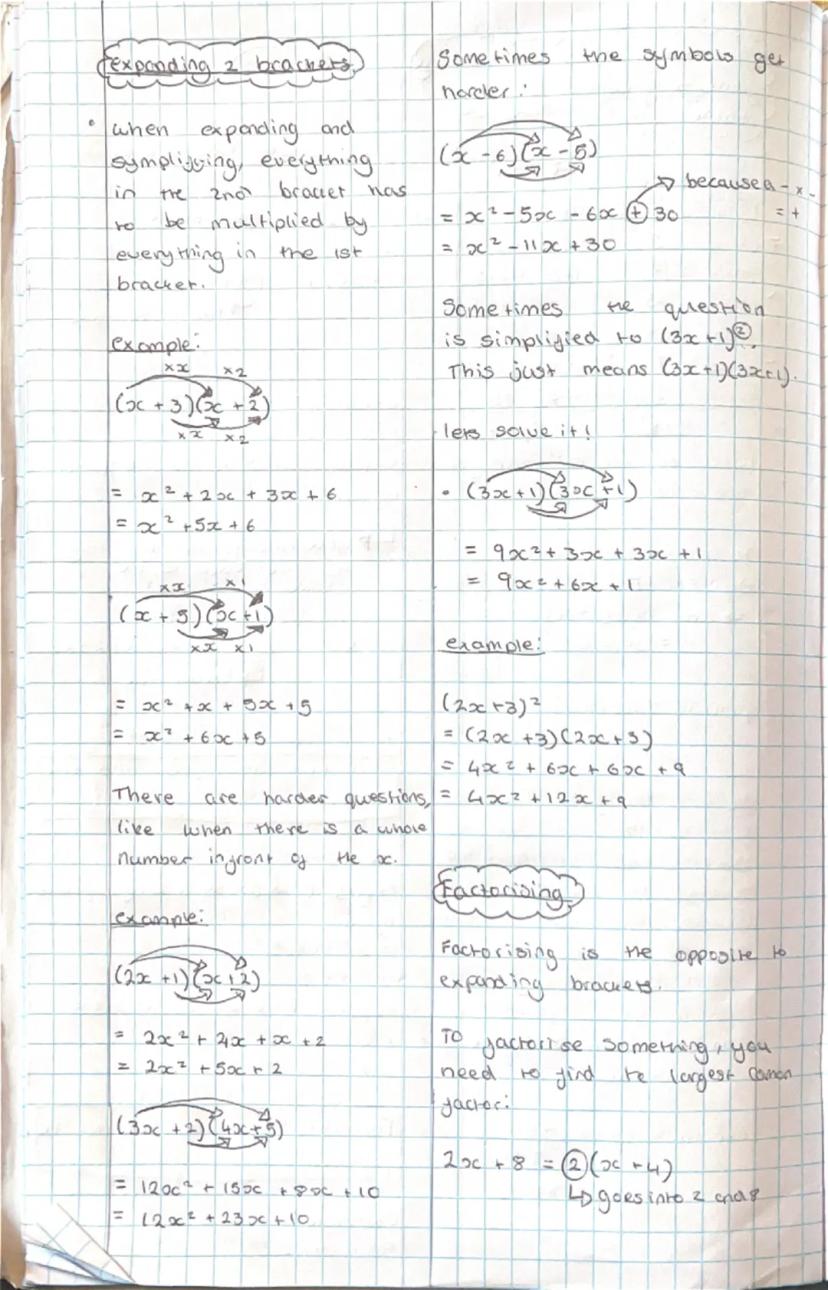 expanding 2 brackets
• when expanding and
symplifying, everything
in the 2nd bracket has
to be multiplied by
everything in the 1st
bracket.
example:
×x ×2
(x + 3)(x + 2)
×x ×2
= x² + 2x + 3x + 6
= x² + 5x + 6
×x ×1
(x + 5)(x + 1)
×x ×1
= x² + x + 5x + 5
= x² + 6x + 5
There are harder questions,
like when there is a whole
number infront of the x.
example:
(2x + 1)(x + 2)
= 2x² + 4x + x + 2
= 2x² + 5x + 2
(3x + 2)(4x + 5)
= 12x² + 15x + 8x + 10
= 12x² + 23x + 10
Sometimes the symbols get
harder:
(x - 6)(x - 5)
because a - x -
= x² - 5x - 6x + 30 = +
= x² - 11x + 30
Sometimes the question
is simplified to (3x + 1)².
This just means (3x+1)(3x+1).
lets solve it!
• (3x + 1)(3x + 1)
= 9x² + 3x + 3x + 1
= 9x² + 6x + 1
example:
(2x + 3)²
= (2x + 3)(2x + 3)
= 4x² + 6x + 6x + 9
= 4x² + 12x + 9
Factorising
Factorising is the opposite to
expanding brackets.
To factorise something, you
need to find te largest
factor:
2x + 8 = 2(x + 4)
↳ goes into 2 and 8